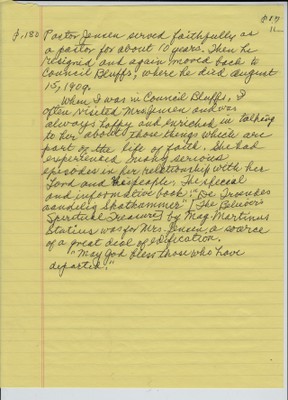 p.180 Pastor Jensen served faithfully as
a pastor for about 10 years. Then he
resigned and again moved back to
Council Bluffs, where he died August
15, 1909.
When I was in Council Bluffs, I
often visited Mrs. Jensen and was
always happy and enriched in talking
to her about those things which are
part of the life of faith. She had
experienced many serious
episodes in her relationship with her
Lord and people. The special
and informative book: "De Troendes
aandelig Skatkammer" [The Believer's
Spiritual Treasure] by Mag. Martinus
Statius was for Mrs. Jensen a source
of a great deal of edification.
"May God bless those who have
departed."